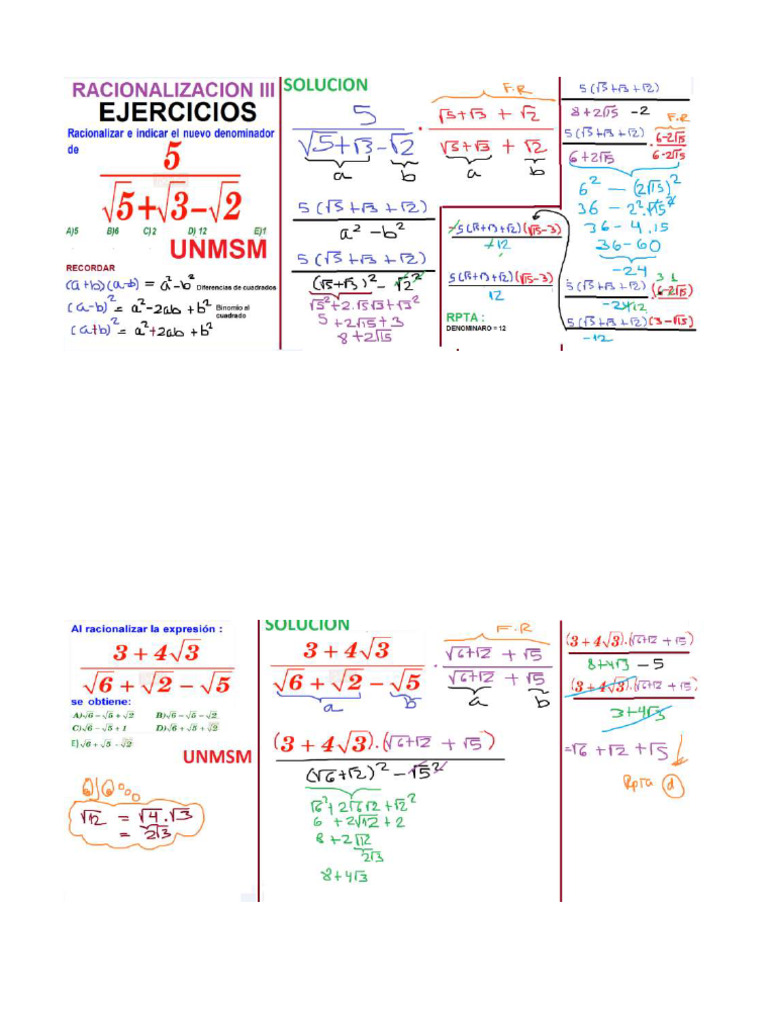 RACIONALIZACION III
EJERCICIOS
Racionalizar e indicar el nuevo denominador
de
5
√5+√3−√2
A)5 B)6 C)2 D) 12 E)1
UNMSM
RECORDAR
(a+b)(a−b) = a²−b² Diferencias de cuadrados
(a−b)² = a²−2ab+b² Binomio al
cuadrado
(a+b)² = a²+2ab+b²
SOLUCION
F.R
5 . √5+√3 + √2
√5+√3−√2 √5+√3 + √2
a b a b
5(√5+√3+√2)
a²−b²
5(√5+√3+√2)
(√5+√3)²−√2²
√5²+2.√5√3+√3²
5+2√15+3
8+2√15
−5(√5+√3+√2)(√15−3)
−12
5(√5+√3+√2)(√15−3)
12
RPTA :
DENOMINARO = 12
5(√5+√3+√2)
8+2√15 −2
F.R
5(√5+√3+√2) . 6−2√15
6+2√15 6−2√15
6²−(2√15)²
36−2².√15²
36−4.15
36−60
−24
3 1
5(√5+√3+√2).(6−2√15)
−24 12
5(√5+√3+√2)(3−√15)
−12
Al racionalizar la expresión :
3+4√3
√6+√2−√5
se obtiene:
A)√6−√5+√2 B)√6−√5−√2
C)√6−√5+1 D)√6+√5+√2
E)√6+√5 -√2
UNMSM
√12 = √4.√3
= 2√3
SOLUCION
F.R
3+4√3 . √6+√2 + √5
√6+√2−√5 √6+√2 + √5
a b a b
(3+4√3).(√6+√2 + √5)
(√6+√2)²−√5²
√6²+2√6√2+√2²
6+2√12+2
8+2√12
2√3
8+4√3
(3+4√3).(√6+√2+√5)
8+4√3−5
(3+4√3).(√6+√2+√5)
3+4√3
=√6+√2+√5
Rpta d